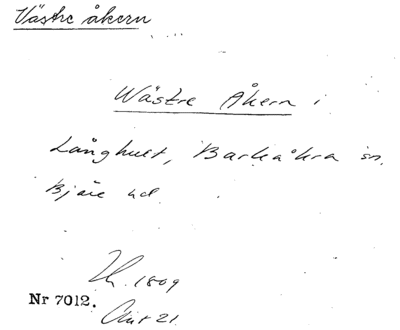 Västre åkern
Wästre Åkern i
Långhult, Barkåkra sn.
Bjäre hd.
1809
Nr 7012.
21.